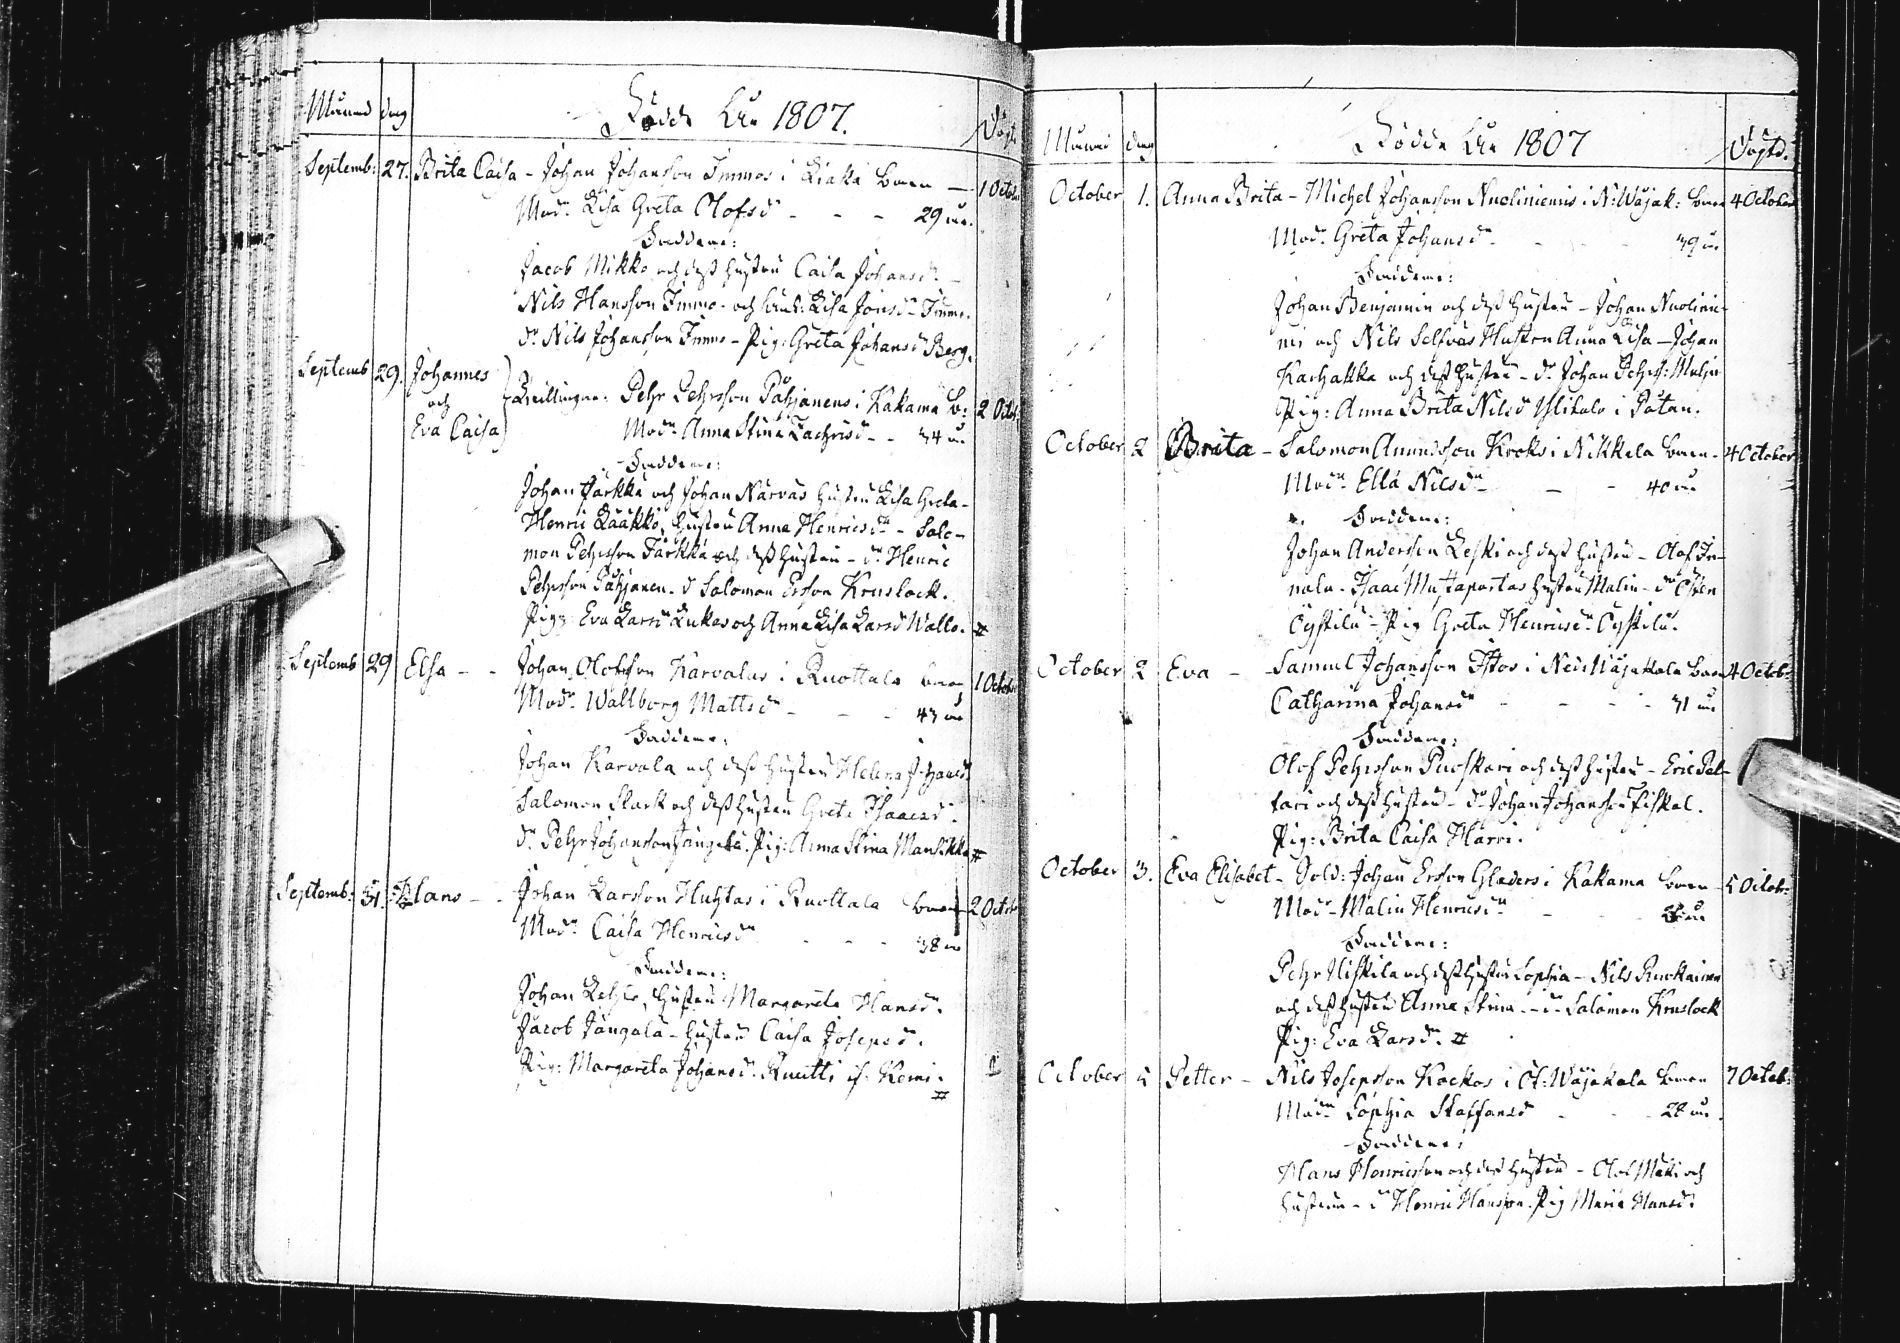 Månad dag Födde År 1807. Döpt.
Septemb: 27. Brita Caisa - Johan Johansson Immos i Liakka boen — 1 Octob:
Modn Lisa Greta Olofsdr - - - 29 år.
Faddrar:
Jacob Mikko och dess hustru Caisa Johansdr -
Nils Hansson Immo - och Lisa Jonsdr Immo.
dr. Nils Johansson Immo - Pig: Greta Johansdr Berg.
Septemb 29. Johannes
och
Eva Caisa
Tvillingar: Pehr Pehrsson Päkjanens i Kakama b: 2 Octob:
Modn Anna Stina Zachrisdr - - 34 år
Faddrar:
Johan Järkkä och Johan Närväs hustru Lisa Greta -
Henric Lääkkö, hustru Anna Henricsdr - Salo-
mon Pehrsson Färkkä och dess hustru - dr Henric
Pehrsson Päkjanen - dr Salomon Ersson Kruslock.
Pigr Eva Larsdr Lukas och Anna Lisa Larsdr Wallo. #
Septemb 29 Elsa - - Johan Olofsson Karvalas i Ruottala boen 1 Octob
Modr Wallborg Mattsdr - - - 43 år
Faddrar:
Johan Karvala och dess hustru Helena Johansdr
Salomon Stark och dess hustru Greta Isaacsdr.
dr. Pehr Johansson Jängalä. Pig: Anna Stina Mansikka #
Septemb: Hans - - Johan Larsson Huhtas i Ruottala boen 2 Octob
Modr Caisa Henricsdr - - - 38 år
Faddrar:
Johan hustru Margareta Hansdr.
Jacob Jängalä - hustru Caisa Josepsdr.
Pig: Margareta Johansdr. Ruitti if. Kemi. #
Månad dag Födde År 1807 Döptd.
October 1. Anna Brita - Michel Johansson Nuoliniemis i N: Wojak: boen 4 October
Modr Greta Johansdr - - - 39 år
Faddrar:
Johan Benjamin och dess hustru - Johan Nuolinie-
mis och Nils Selfväs Hustru Anna Lisa - Johan
Karhakka och dess hustru - dr Johan Pehrs:
Pig: Anna Brita Nilsdr Ylitalo i Pätan.
October 2 Brita - Salomon Amundsson Kroks i Nikkala boen - 4 October
Modr Ella Nilsdr - - - 40 år
Faddrar:
Johan Andersson Leski och dess hustru - Olof In-
nala - Isaac Mustaparta hustru Malin - dr
- Pig Greta Henricsdr
October 2 Eva - - Samuel Johansson Istos i Ned: Wojakala boen 4 Octob:
Catharina Johansdr - - - - 31 år
Faddrar:
Olof Pehrsson Puoskari och dess hustru - Eric Pel-
tari och dess hustru - dr Johan Johansson Fiskal.
Pig: Brita Caisa Harri.
October 3. Eva Elisabet - Sold: Johan Ersson Gladers i Kakama boen - 5 Octob:
Modr Malin Henricsdr - - - år
Faddrar:
Pehr Hiskila och dess hustru Sophia - Nils Ruokainen
och dess hustru Anna Stina - - dr Salomon Kruslock
Pig: Eva Larsdr. #
October 5 Petter - Nils Josepsson Kockos i Öf: Wojakala boen 7 Octob:
Modr Sophia Staffansdr - - - 28 år.
Faddrar:
Hans Henricsson och dess hustru - Olof Mäki och
hustrun - dr Henric Hansson. Pig Maria Hansdr.